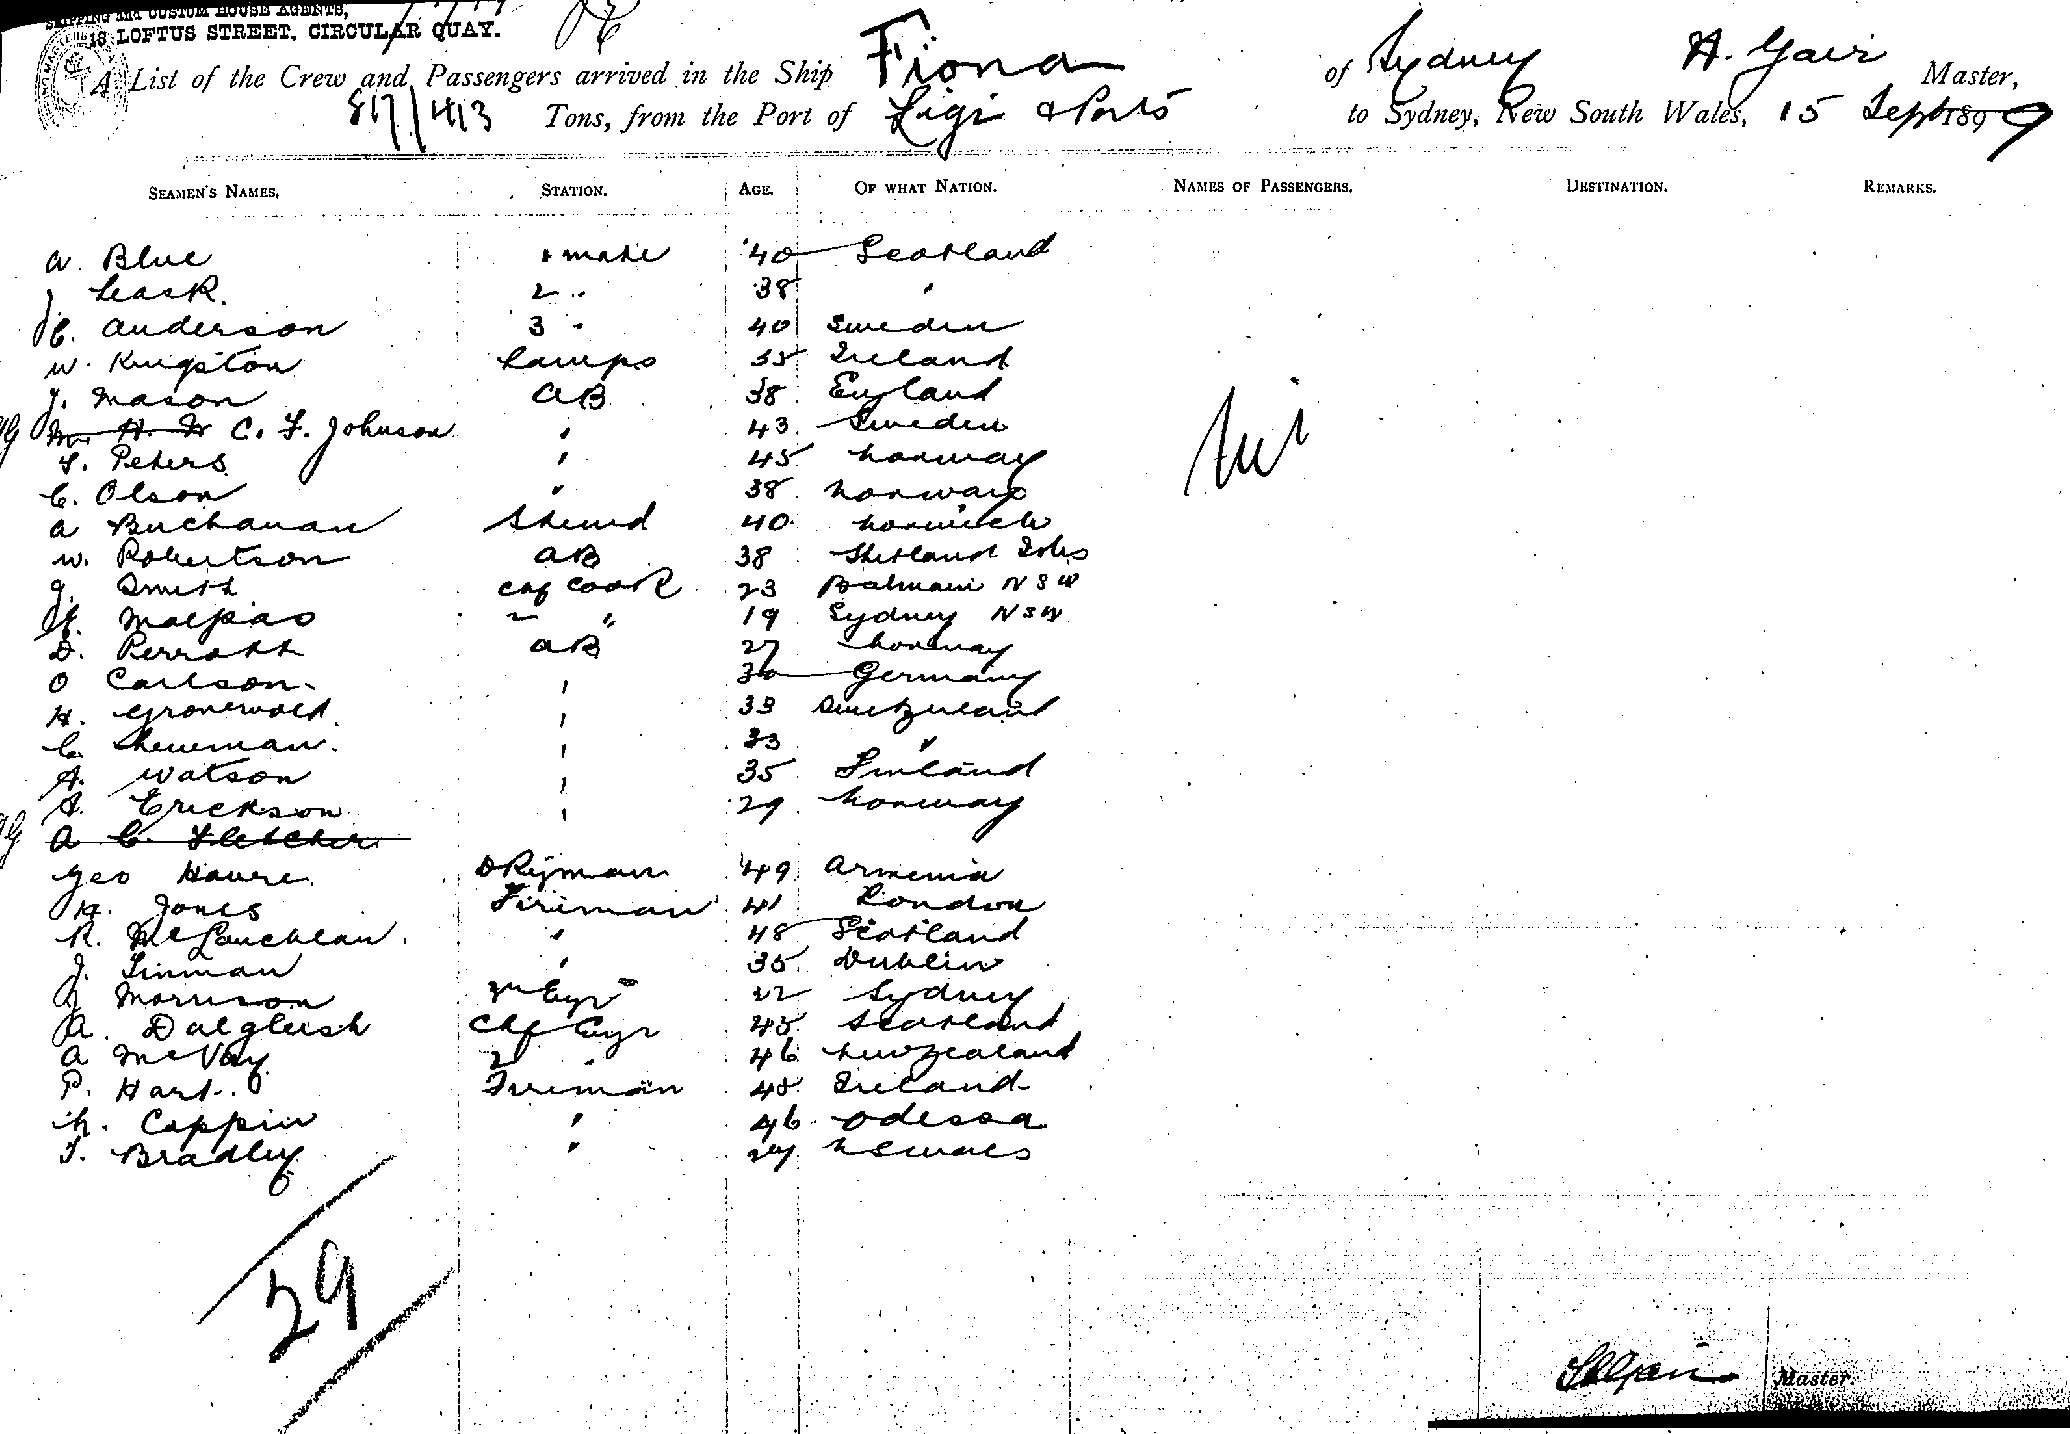 SHIPPING and CUSTOM HOUSE AGENTS,
18 LOFTUS STREET, CIRCULAR QUAY.
A List of the Crew and Passengers arrived in the Ship Fiona of Sydney H. Gair Master,
817/1413 Tons, from the Port of Figi & Ports to Sydney, New South Wales, 15 Sept 1899
SEAMEN'S NAMES. STATION. AGE. OF WHAT NATION. NAMES OF PASSENGERS. DESTINATION. REMARKS.
A. Blue 1 mate 40 Scotland
J Leask. 2 " 38 "
C. Anderson 3 " 40 Sweden
W. Kingston Lamps 35 Ireland
J. Mason AB 38 England
C. F. Johnson " 43 Sweden
Nil
S. Peters " 45 Norway
C. Olson " 38 Norway
A Buchanan Steward 40 Norwich
W. Robertson AB 38 Shetland Isles
J. Smith Chf Cook 23 Balmain NSW
H. Malpas 2 " 19 Sydney NSW
D. Perratt AB 27 Norway
O Carlson " 30 Germany
H. Gronerwold. " 33 Switzerland
C. " 33 "
A. Watson " 35 Finland
A. Erickson " 29 Norway
A C. Fletcher
Geo 49 Armenia
H. Jones Fireman 41 London
R. McLauchlan. " 48 Scotland
J. Linman " 35 Dublin
J Morrison 3rd Engr 22 Sydney
A. Dalgleish Chf Engr 45 Scotland
A McVay 2 " 46 New Zealand
P. Hart. Fireman 48 Ireland
Cappin " 46 Odessa
T. Bradley " 27 N S Wales
29
H Gair Master.